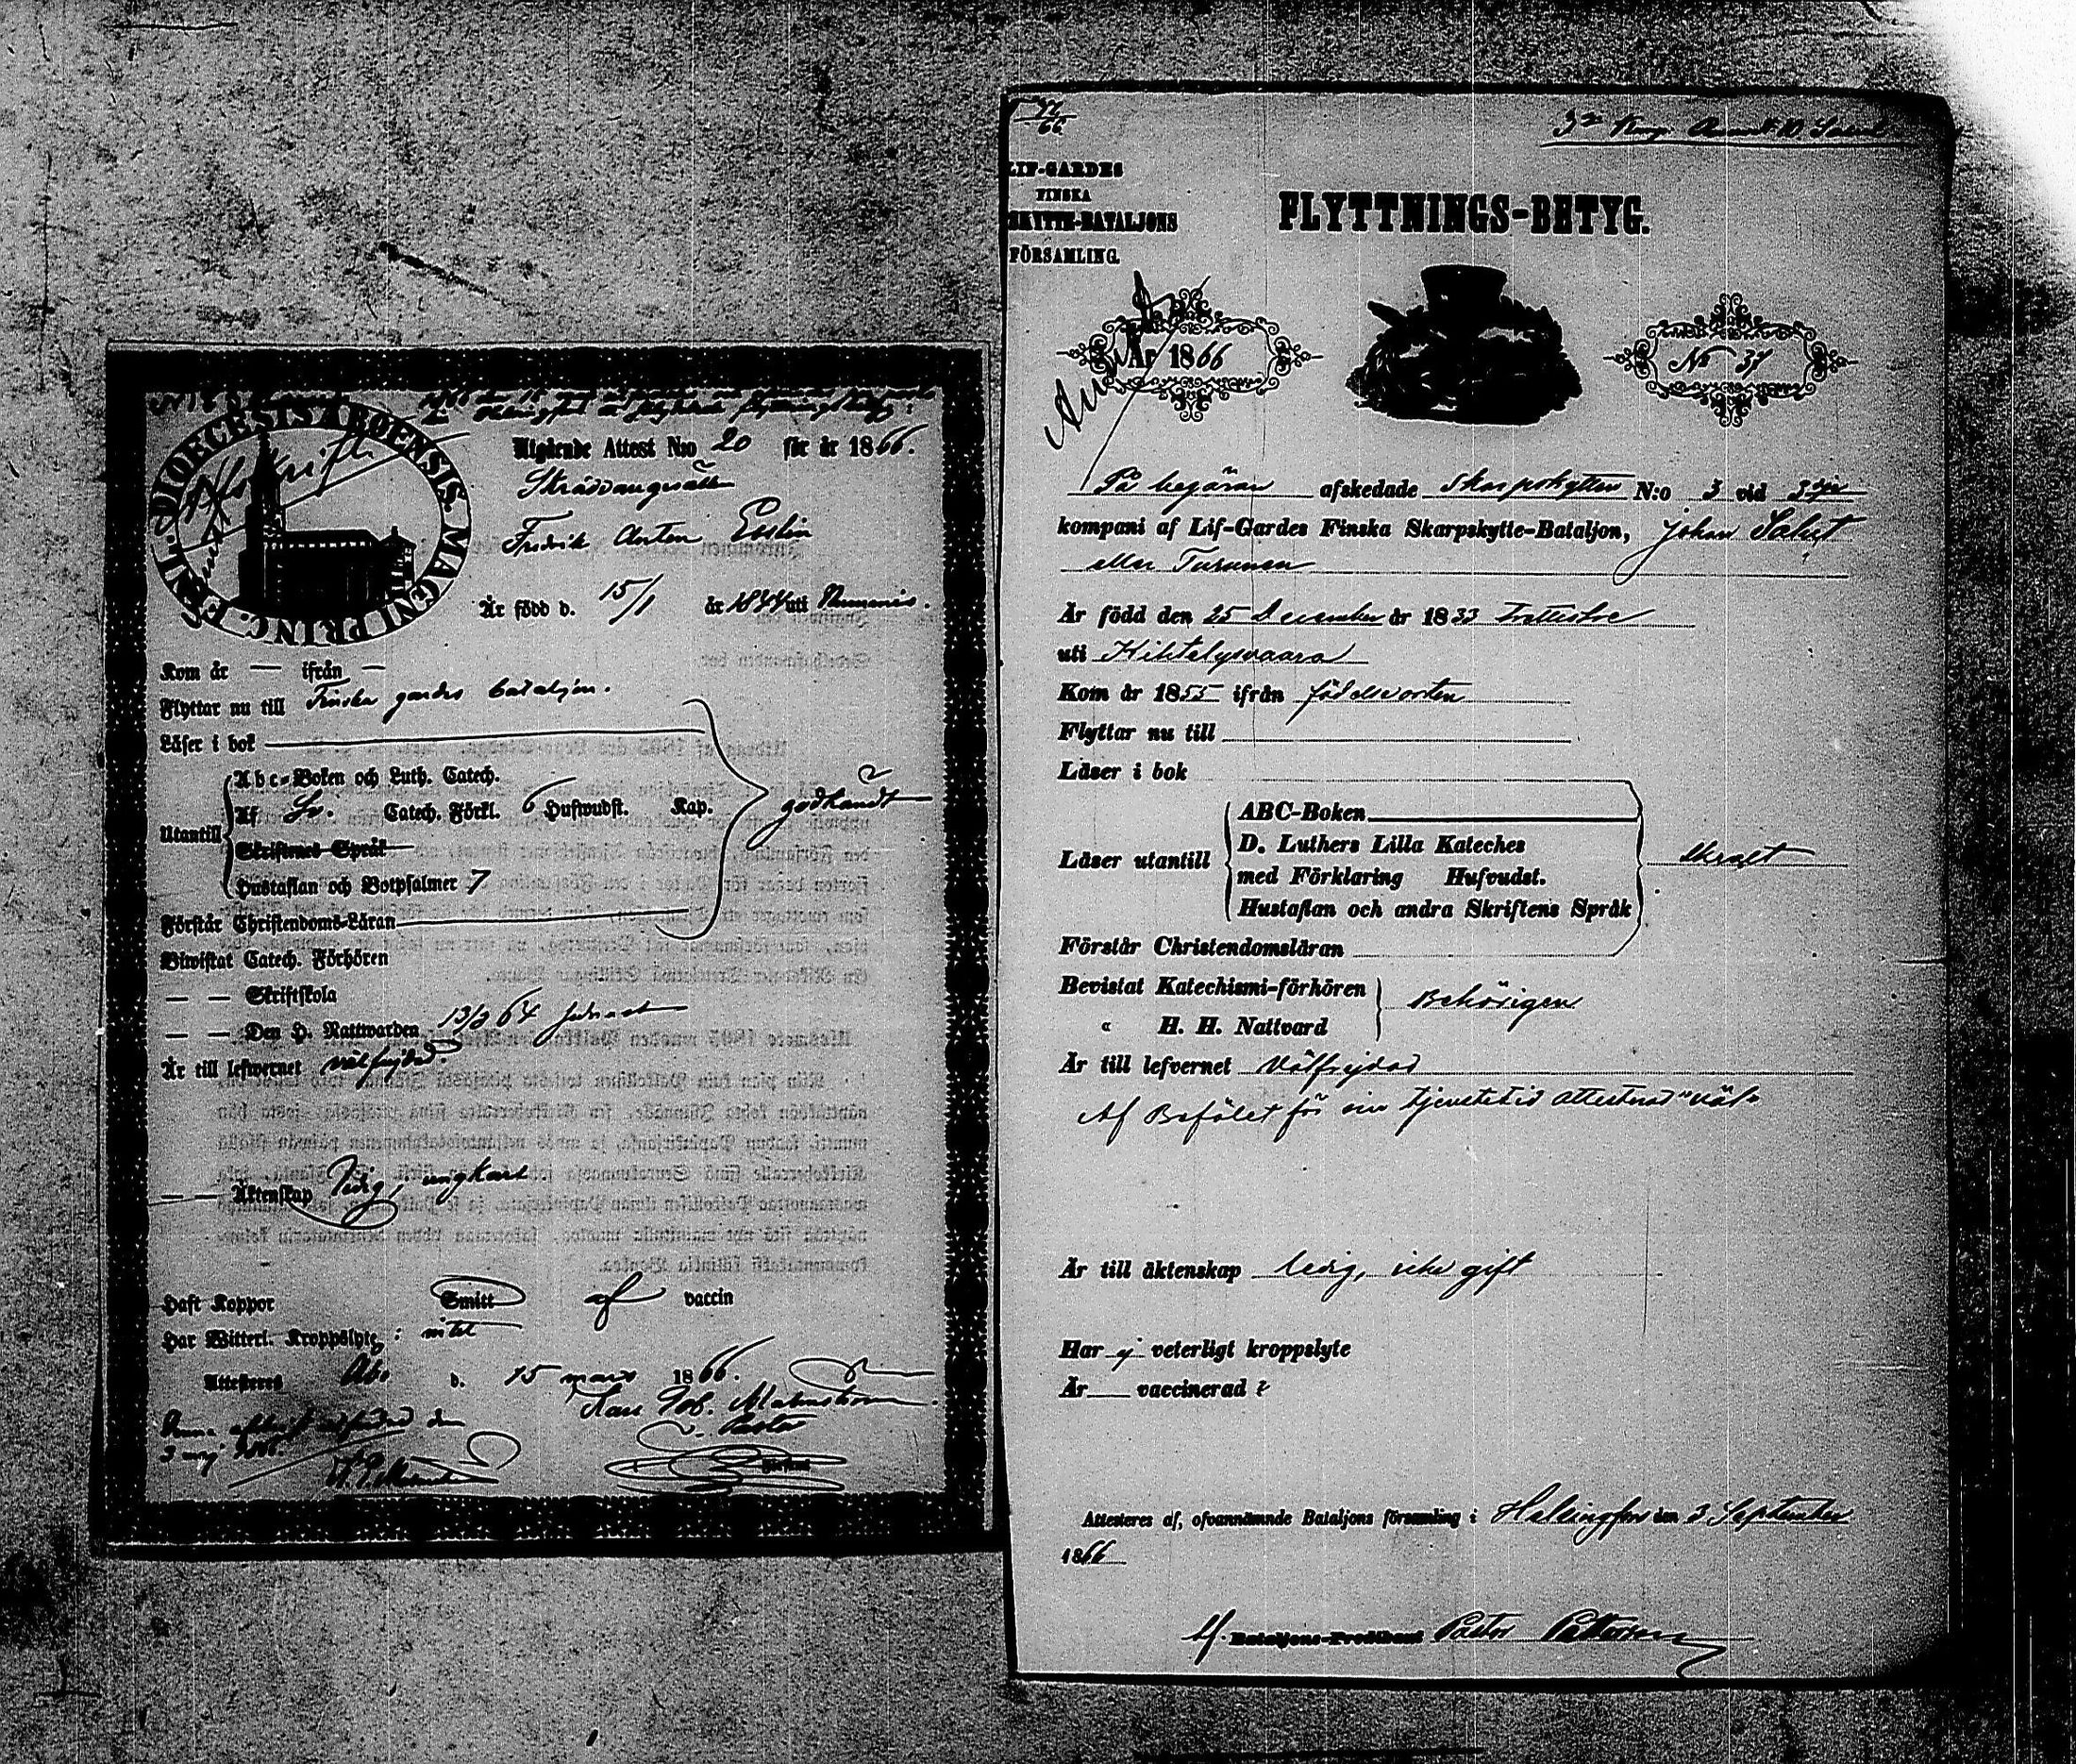 SIGIL. DIOECESIS ABOENSIS. MAGNI PRINC. FENL.
Afskrift
Utgående Attest N:o 20 för år 1866.
Skräddaregesällen
Fredrik Anton
Är född d. 15/1 år 1844 uti Nummis.
Kom år — ifrån —
Flyttar nu till Finska gardes bataljon.
Läser i bok
Abc-Boken och Luth. Catech.
Utantill Af Sv. Catech. Förkl. 6 Hufwudst. Kap. godkändt
Skriftenes Språk
Hustaflan och Botpsalmer 7
Förstår Christendoms-Läran
Biwistat Catech. Förhören
— — Skriftskola
— — Den H. Nattwarden 13/3 64
Är till lefwernet välfrejdad.
— — Äktenskap ledig, ungkarl
Haft Koppor Smitt af vaccin
Har Witterl. Kroppslyte: intet
Attesteras Åbo d. 15 mars 1866.
Karl Malmström.
v. Pastor
3 maj 1866.
LIF-GARDES
FINSKA
SKYTTE-BATALJONS
FÖRSAMLING.
FLYTTNINGS-BETYG.
År 1866
No 37
På begäran afskedade Skarpskytten N:o 3 vid 3dje
kompani af Lif-Gardes Finska Skarpskytte-Bataljon, Johan Salut
eller Turunen
Är född den 25 December år 1833
uti Kihtelysvaara
Kom år 1855 ifrån födelseorten
Flyttar nu till
Läser i bok
ABC-Boken
Läser utantill D. Luthers Lilla Kateches
med Förklaring Hufvudst.
Hustaflan och andra Skriftens Språk
Förstår Christendomsläran
Bevistat Katechismi-förhören Behörigen
« H. H. Nattvard
Är till lefvernet Välfrejdad
Af Befälet för sin tjenstetid attesterad "väl"
Är till äktenskap ledig, icke gift
Har ej veterligt kroppslyte
Är vaccinerad
Attesteras af, ofvannämnde Bataljons församling i Helsingfors den 3 September
1866
Af Bataljons-Predikant Pastor